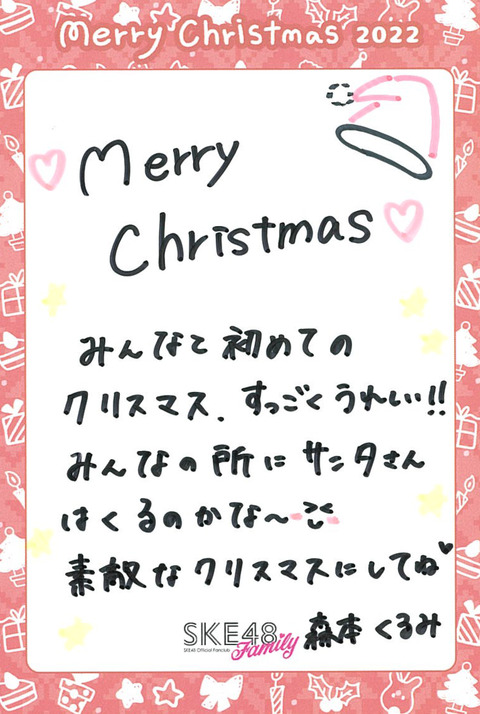 Merry Christmas 2022
Merry
Christmas
みんなと初めての
クリスマス、すっごくうれしい!!
みんなの所にサンタさん
はくるのかな〜
素敵なクリスマスにしてね
SKE48
SKE48 Official Fanclub
Family
森本くるみ